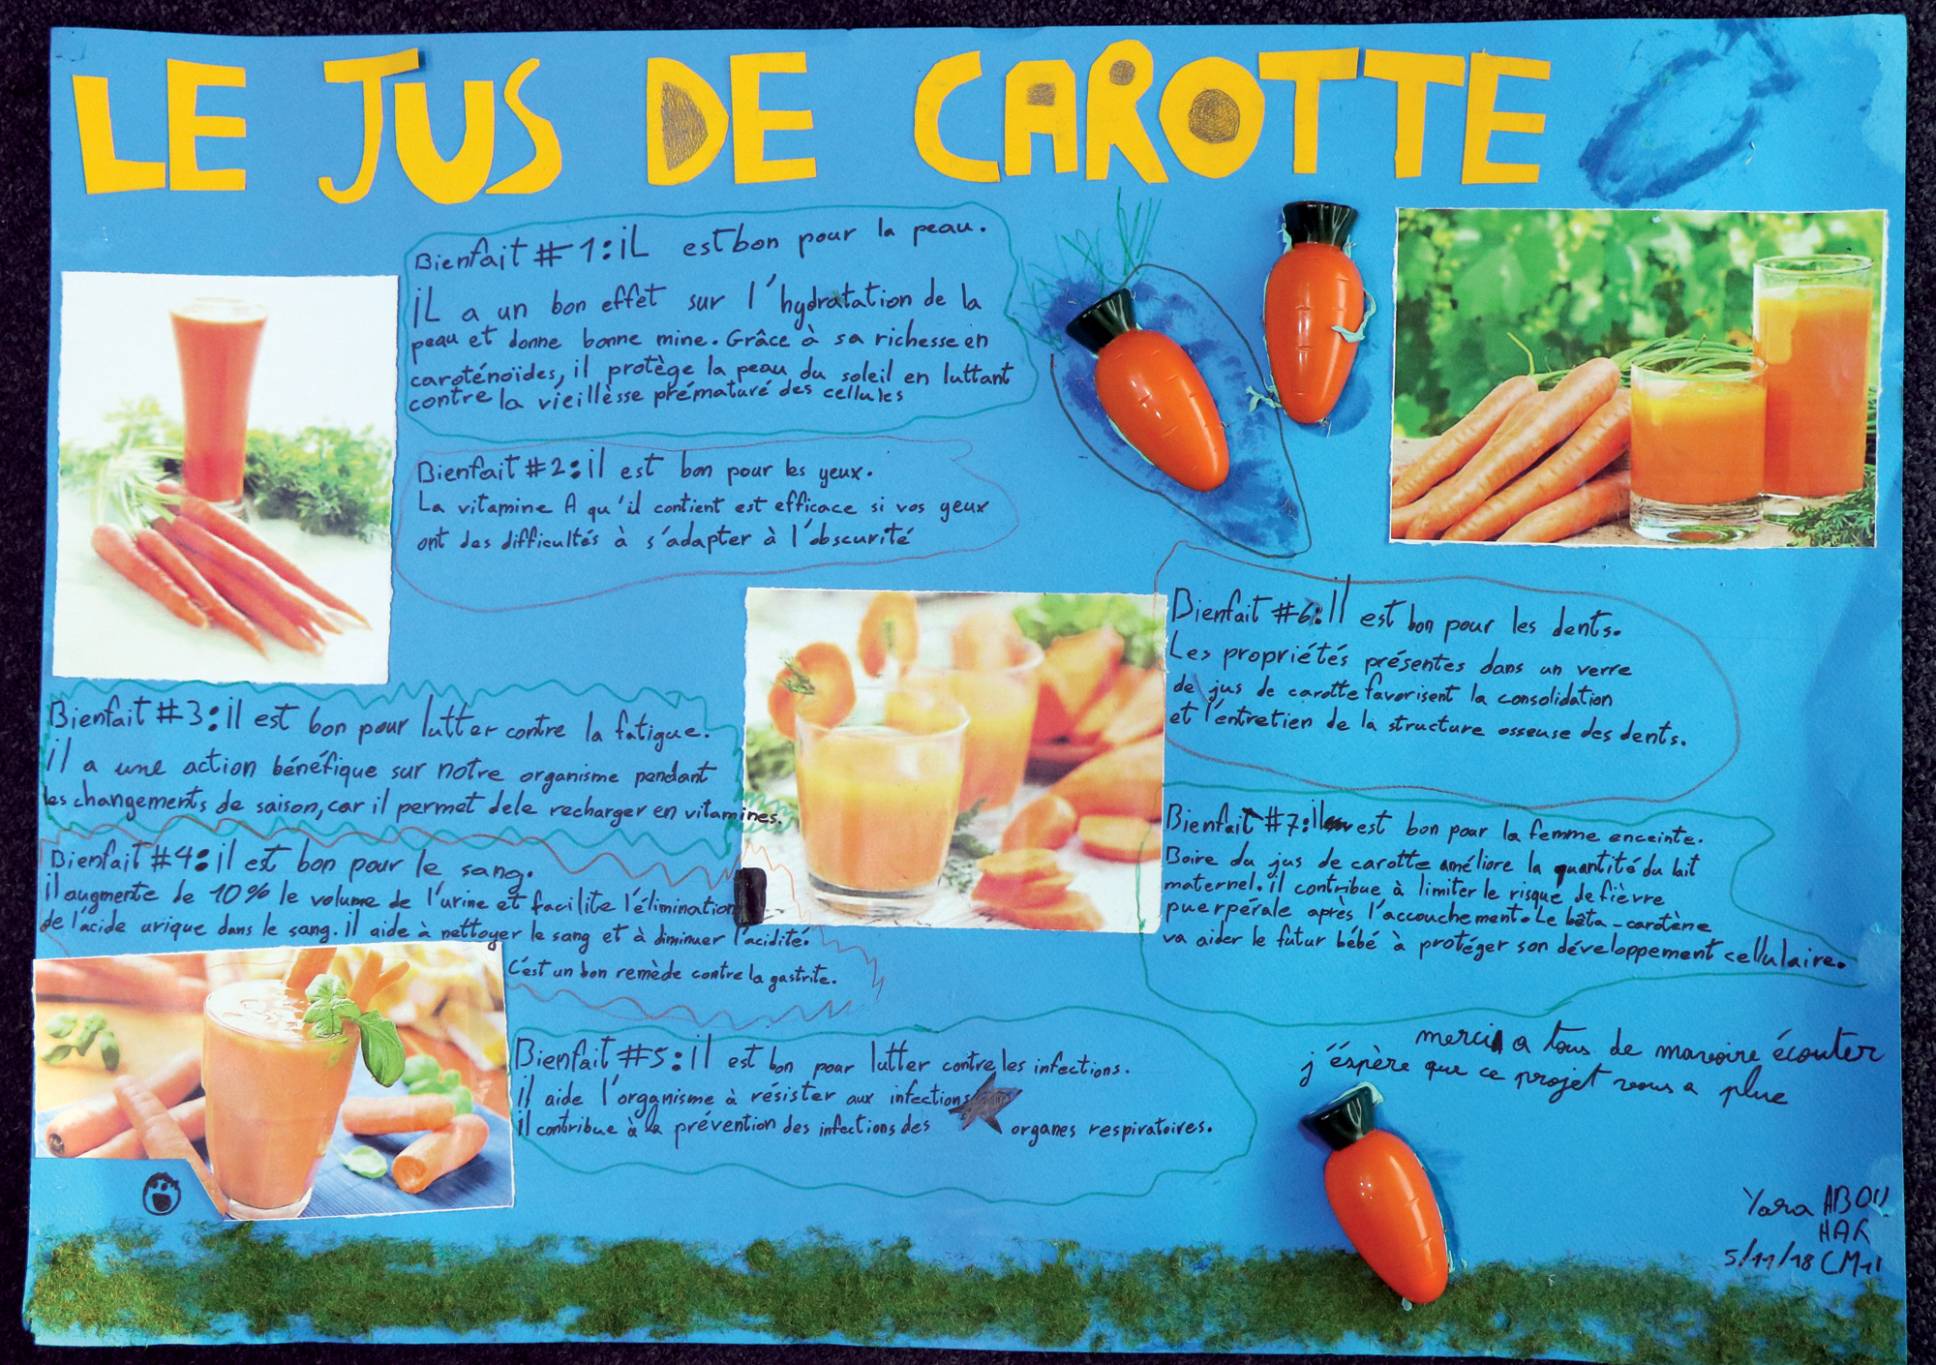 LE JUS DE CAROTTE
Bienfait #1: il est bon pour la peau.
il a un bon effet sur l'hydratation de la
peau et donne bonne mine. Grâce à sa richesse en
caroténoïdes, il protège la peau du soleil en luttant
contre la vieillèsse prématuré des cellules
Bienfait #2: il est bon pour les yeux.
La vitamine A qu'il contient est efficace si vos yeux
ont des difficultés à s'adapter à l'obscurité
Bienfait #3: il est bon pour lutter contre la fatigue.
il a une action bénéfique sur notre organisme pendant
les changements de saison, car il permet dele recharger en vitamines.
Bienfait #4: il est bon pour le sang.
il augmente de 10% le volume de l'urine et facilite l'élimination
de l'acide urique dans le sang. il aide à nettoyer le sang et à diminuer l'acidité.
C'est un bon remède contre la gastrite.
Bienfait #5: il est bon pour lutter contre les infections.
il aide l'organisme à résister aux infections
il contribue à la prévention des infections des organes respiratoires.
Bienfait #6: Il est bon pour les dents.
Les propriétés présentes dans un verre
de jus de carotte favorisent la consolidation
et l'entretien de la structure osseuse des dents.
Bienfait #7: il est bon pour la femme enceinte.
Boire du jus de carotte améliore la quantité du lait
maternel. il contribue à limiter le risque de fièvre
puerpérale après l'accouchement. Le bêta-carotène
va aider le futur bébé à protéger son développement cellulaire.
merci a tous de mavoire écouter
j'éspère que ce projet vous a plue
Yara ABOU
HAR
5/11/18 CM1